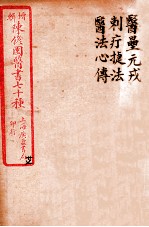 醫壘元戎
刺疔捷法
醫法心傳
陳修園醫書七十種
上海